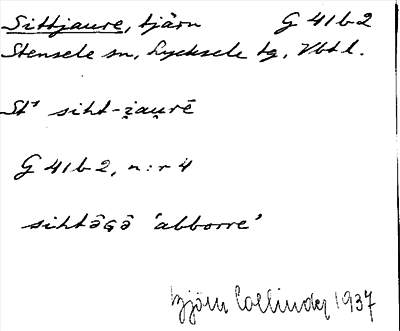 Sittjaure, tjärn G 41 b 2
Stensele sn, Lycksele tg, Vbtl.
St¹ siht-i̯au̯rē
G 41 b 2, n:r 4
sihtəgə 'abborre'
Björn Collinder 1937